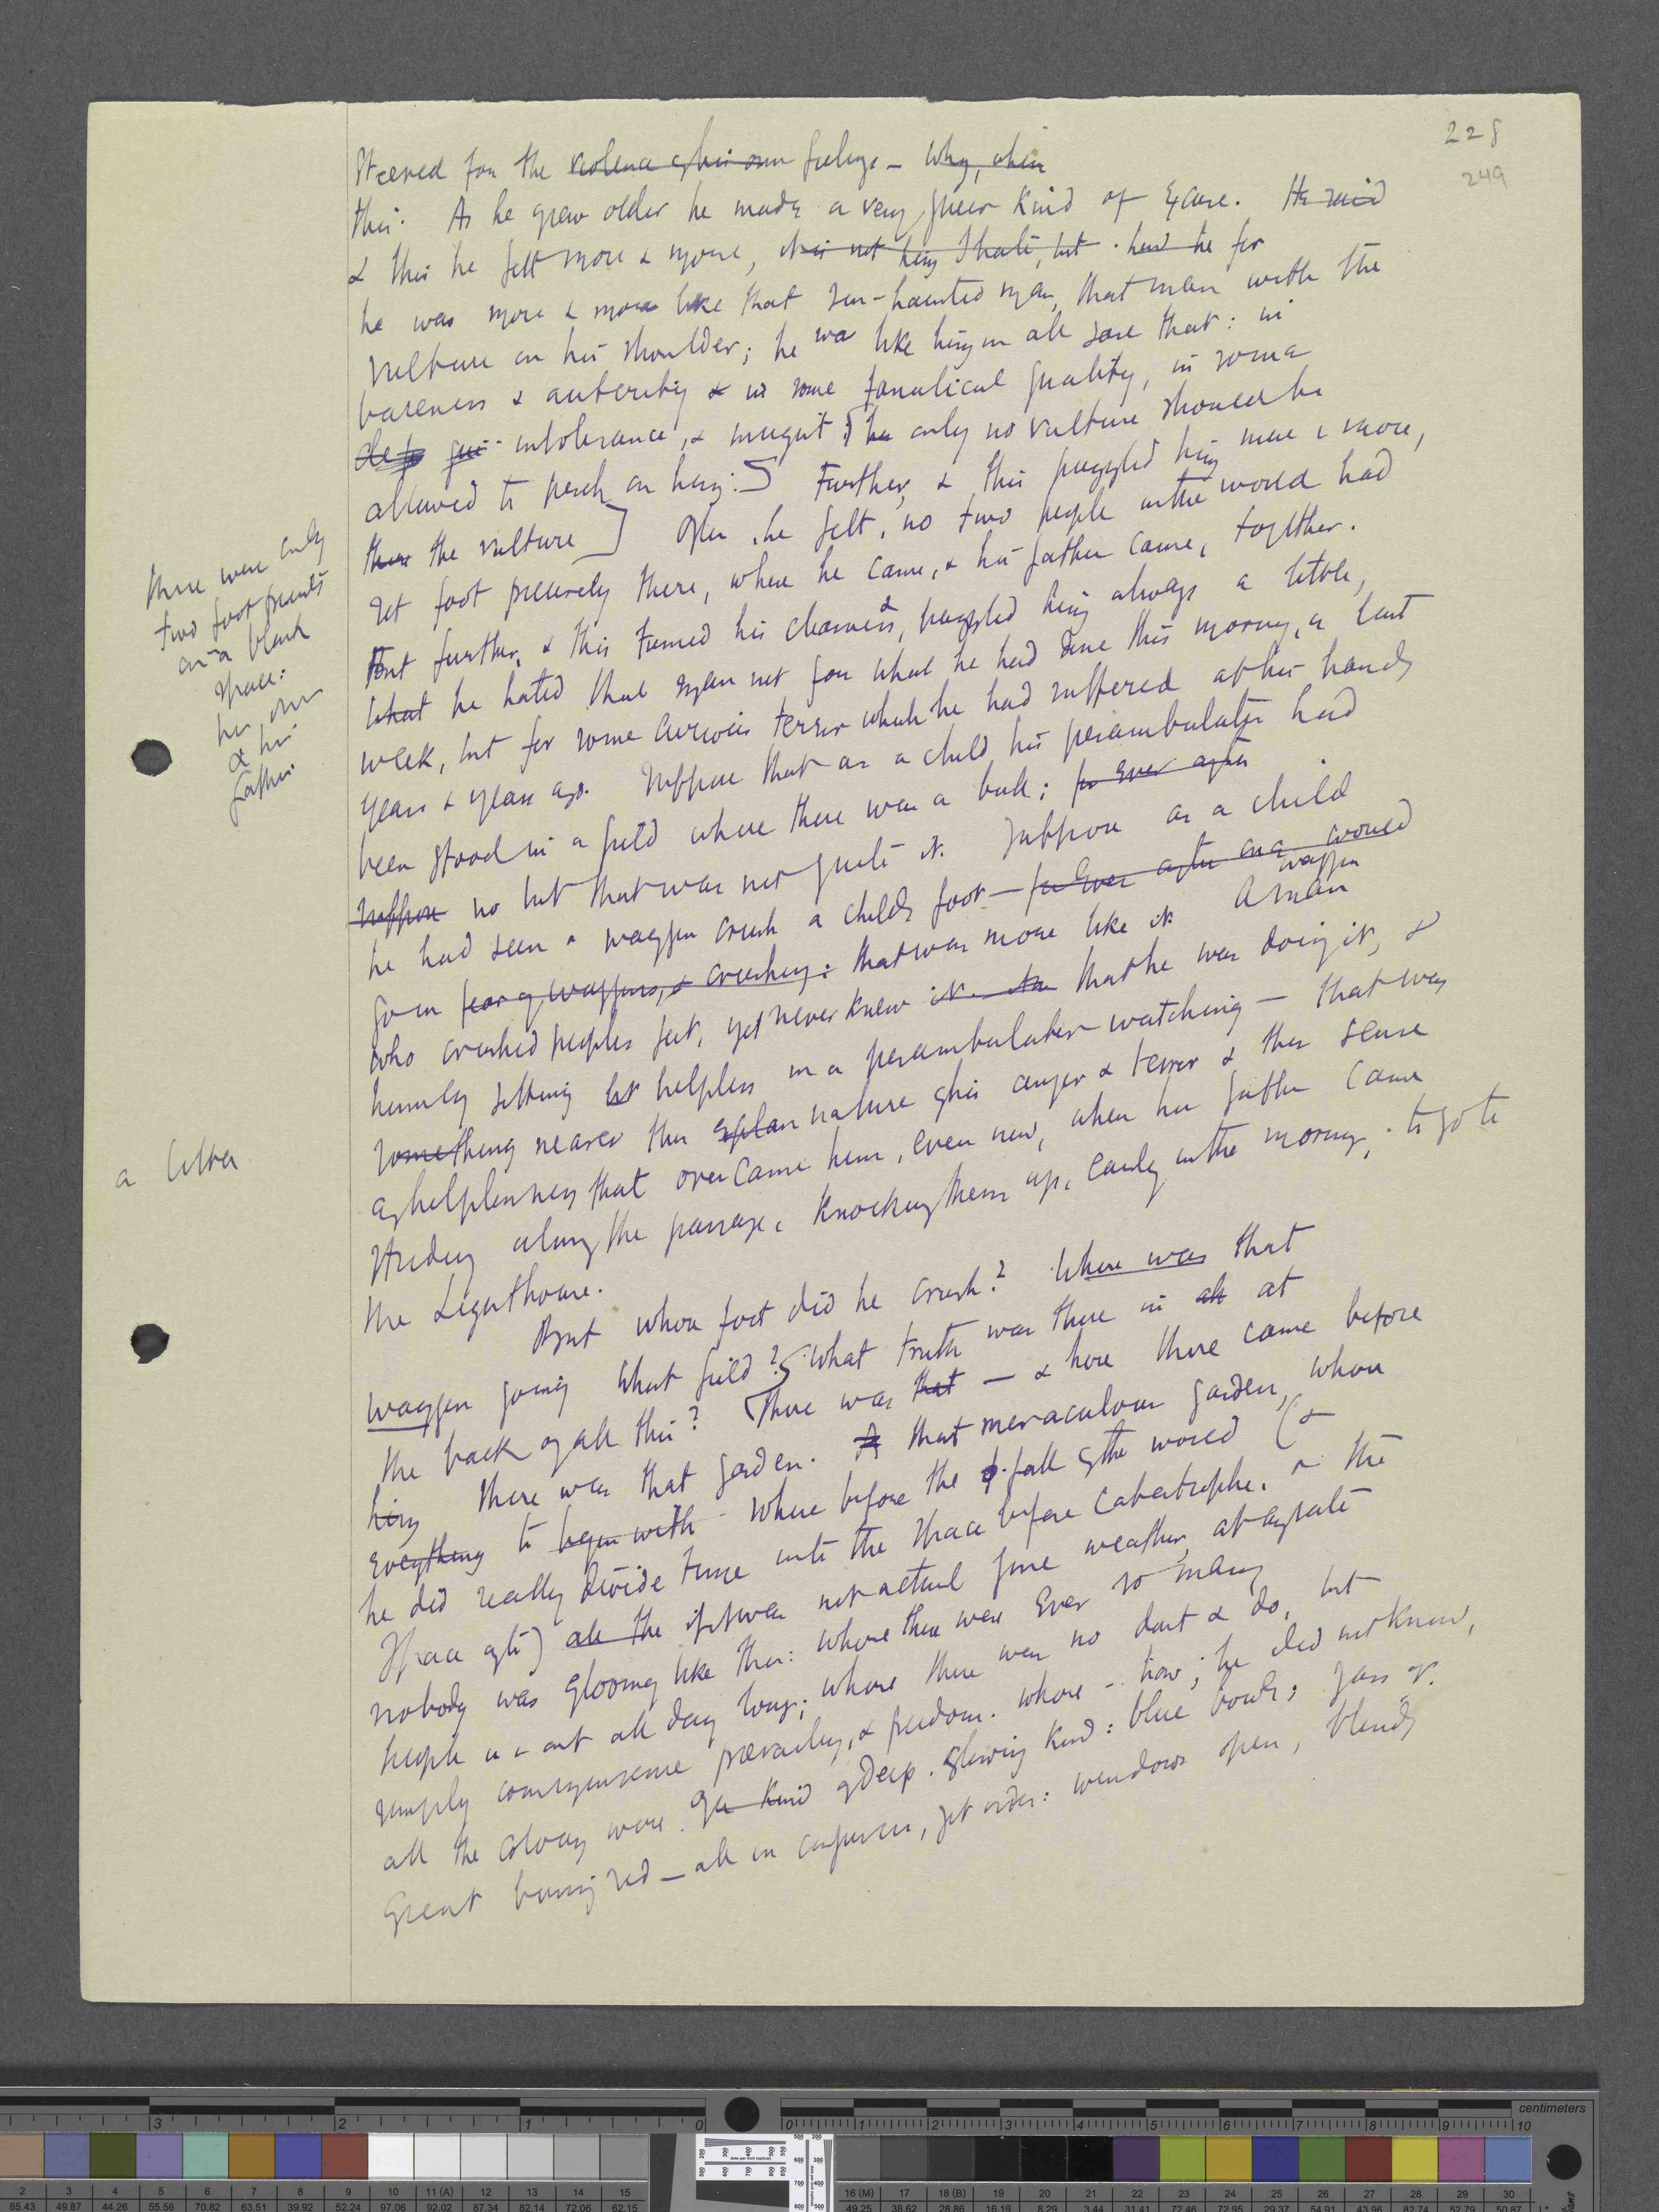 228
249
steered for the violence of his own feelings - Why, when
this. As he grew older he made a very queer kind of excuse. He said
& this he felt more & more, it is not him I hate, but. had he for
he was more & more like that sea-haunted man, that man with the
vulture on his shoulder; he was like him in all save that: in
bareness & austerity & in some fanatical quality, in some
intolerance, & only no vulture should be
allowed to perch on him:] Further, & this puzzled him more & more,
there the vulture] often, he felt, no two people in the world had
set foot precisely there, where he came, & his father came, together.
But further, & this & puzzled him always a little,
what he hated that man not for what he had done this morning, or last
week, but for some curious terror which he had suffered at his hands
years & years ago. Suppose that as a child his perambulator had
been stood in a field where there was a bull; for ever after
suppose no but that was not quite it. Suppose as a child
he had seen a waggon crush a childs foot - for ever after one would
go in fear of waggons, & crushing: that was more like it. A man waggon
who crushed peoples feet, yet never knew it. that he was doing it, &
himself sitting helpless in a perambulator watching - that was
something nearer the explan nature of his anger & terror & this sense
of helplessness that overcame him, even now, when his father came
striding along the passage, knocking them up, early in the morning, to go to
the Lighthouse.
But whose foot did he crush? Where was that
waggon going What field? What truth was there in all at
the back of all this? There was that - & here there came before
him there was that garden. A that miraculous garden, where
everything to begin with - Where before the fall of the world (&
he did really divide time into the space before catastrophe, & the
space after) all the if it was not actual fine weather, at any rate
nobody was glooming like this: where there were ever so many
people in & out all day long; where there was no don't & do, but
simply commonsense prevailing, & freedom. where - how; he did not know,
all the colours were. of a kind of deep. glowing kind: blue bowls; jars of.
Great burning red - all in confusion, yet order: windows open, blinds
there were only
two foot prints
on a blank
space:
his own
& his
father
a letter
centimeters